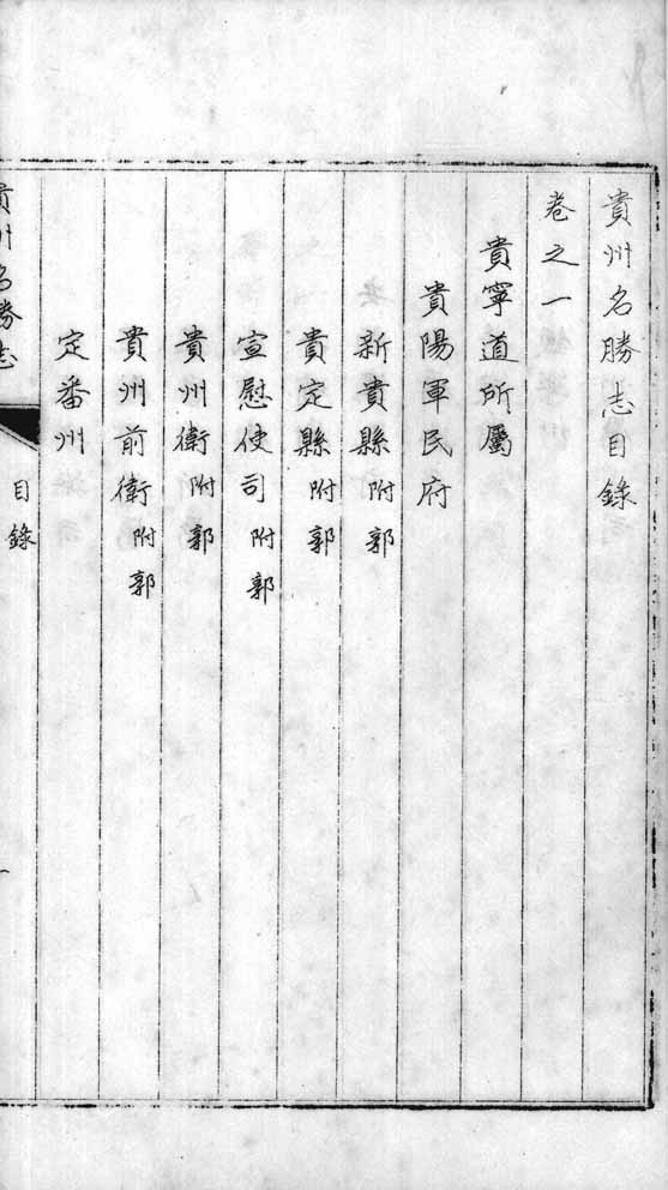 貴州名勝志目錄
卷之一
貴寧道所屬
貴陽軍民府
新貴縣附郭
貴定縣附郭
宣慰使司附郭
貴州衛附郭
貴州前衛附郭
定番州
貴州名勝志 目錄